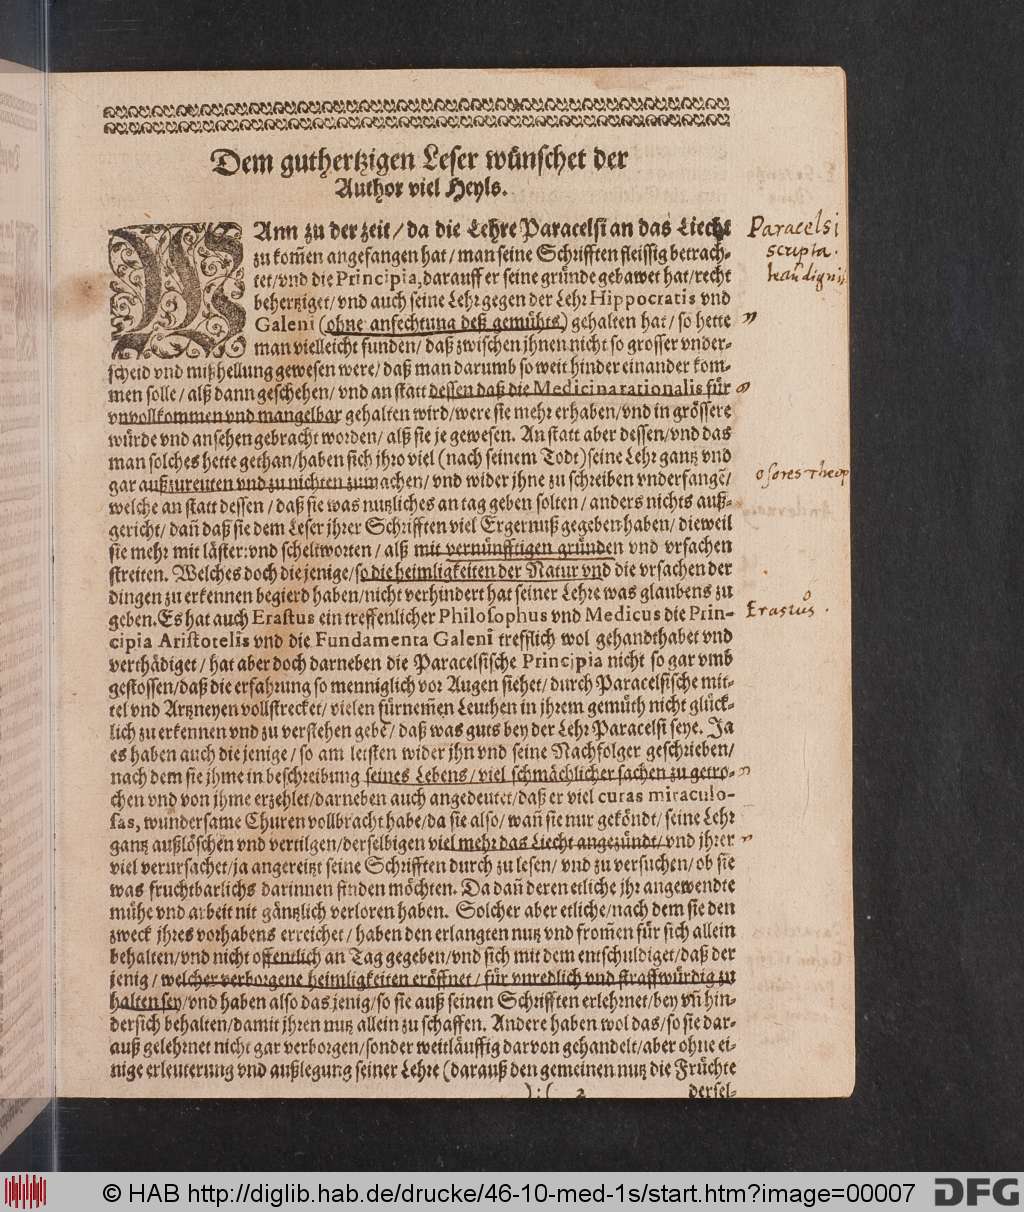 Dem guthertzigen Leser wünschet der
Author viel Heyls.
WAnn zu der zeit / da die Lehre Paracelsi an das Liecht
zu kom̃en angefangen hat / man seine Schrifften fleissig betrach-
tet / vnd die Principia, darauff er seine gründe gebawet hat / recht
behertziget / vnd auch seine Lehr gegen der Lehr Hippocratis vnd
Galeni (ohne anfechtung deß gemühts) gehalten hat / so hette
man vielleicht funden / daß zwischen ihnen nicht so grosser vnder-
scheid vnd mißhellung gewesen were / daß man darumb so weit hinder einander kom-
men solle / alß dann geschehen / vnd an statt dessen daß die Medicina rationalis für
vnvollkommen vnd mangelbar gehalten wird / were sie mehr erhaben / vnd in grössere
würde vnd ansehen gebracht worden / alß sie je gewesen. An statt aber dessen / vnd das
man solches hette gethan / haben sich jhro viel (nach seinem Todt) seine Lehr gantz vnd
gar außzureuten vnd zu nichten zumachen / vnd wider jhne zu schreiben vnderfangẽ /
welche an statt dessen / daß sie was nutzliches an tag geben solten / anders nichts auß-
gericht / dañ daß sie dem Leser jhrer Schrifften viel Ergernuß gegeben haben / dieweil
sie mehr mit läster: vnd scheltworten / alß mit vernünfftigen gründen vnd vrsachen
streiten. Welches doch die jenige / so die heimligkeiten der Natur vnd die vrsachen der
dingen zu erkennen begierd haben / nicht verhindert hat seiner Lehre was glaubens zu
geben. Es hat auch Erastus ein treffenlicher Philosophus vnd Medicus die Prin-
cipia Aristotelis vnd die Fundamenta Galeni trefflich wol gehandthabet vnd
verthädiget / hat aber doch darneben die Paracelsische Principia nicht so gar vmb
gestossen / daß die erfahrung so menniglich vor Augen siehet / durch Paracelsische mit-
tel vnd Artzneyen vollstrecket / vielen fürnem̃en Leuthen in jhrem gemüth nicht glück-
lich zu erkennen vnd zu verstehen gebe / daß was guts bey der Lehr Paracelsi seye. Ja
es haben auch die jenige / so am letsten wider jhn vnd seine Nachfolger geschrieben /
nach dem sie jhme in beschreibung seines Lebens / viel schmächlicher sachen zu getro-
chen vnd von jhme erzehlet / darneben auch angedeutet / daß er viel curas miraculo-
sas, wundersame Churen vollbracht habe / da sie also / wañ sie nur geköndt / seine Lehr
gantz außlöschen vnd vertilgen / derselbigen viel mehr das Liecht angezündt / vnd jhrer
viel verursachet / ja angereitzt seine Schrifften durch zu lesen / vnd zu versuchen / ob sie
was fruchtbarlichs darinnen finden möchten. Da dañ deren etliche jhr angewendte
mühe vnd arbeit nit gäntzlich verloren haben. Solcher aber etliche / nach dem sie den
zweck jhres vorhabens erreichet / haben den erlangten nutz vnd from̃en für sich allein
behalten / vnd nicht offentlich an Tag gegeben / vnd sich mit dem entschuldiget / daß der
jenig / welcher verborgene heimligkeiten eröffnet / für vnredlich vnd straffwürdig zu
halten sey / vnd haben also das jenig / so sie auß seinen Schrifften erlehrnet / bey vñ hin-
dersich behalten / damit jhren nutz allein zu schaffen. Andere haben wol das / so sie dar-
auß gelehrnet nicht gar verborgen / sonder weitläuffig darvon gehandelt / aber ohne ei-
nige erleuterung vnd außlegung seiner Lehre (darauß den gemeinen nutz die Früchte
):( 2 dersel-
Paracelsi
scripta
Osores Theop
Erastus.
© HAB http://diglib.hab.de/drucke/46-10-med-1s/start.htm?image=00007
DFG